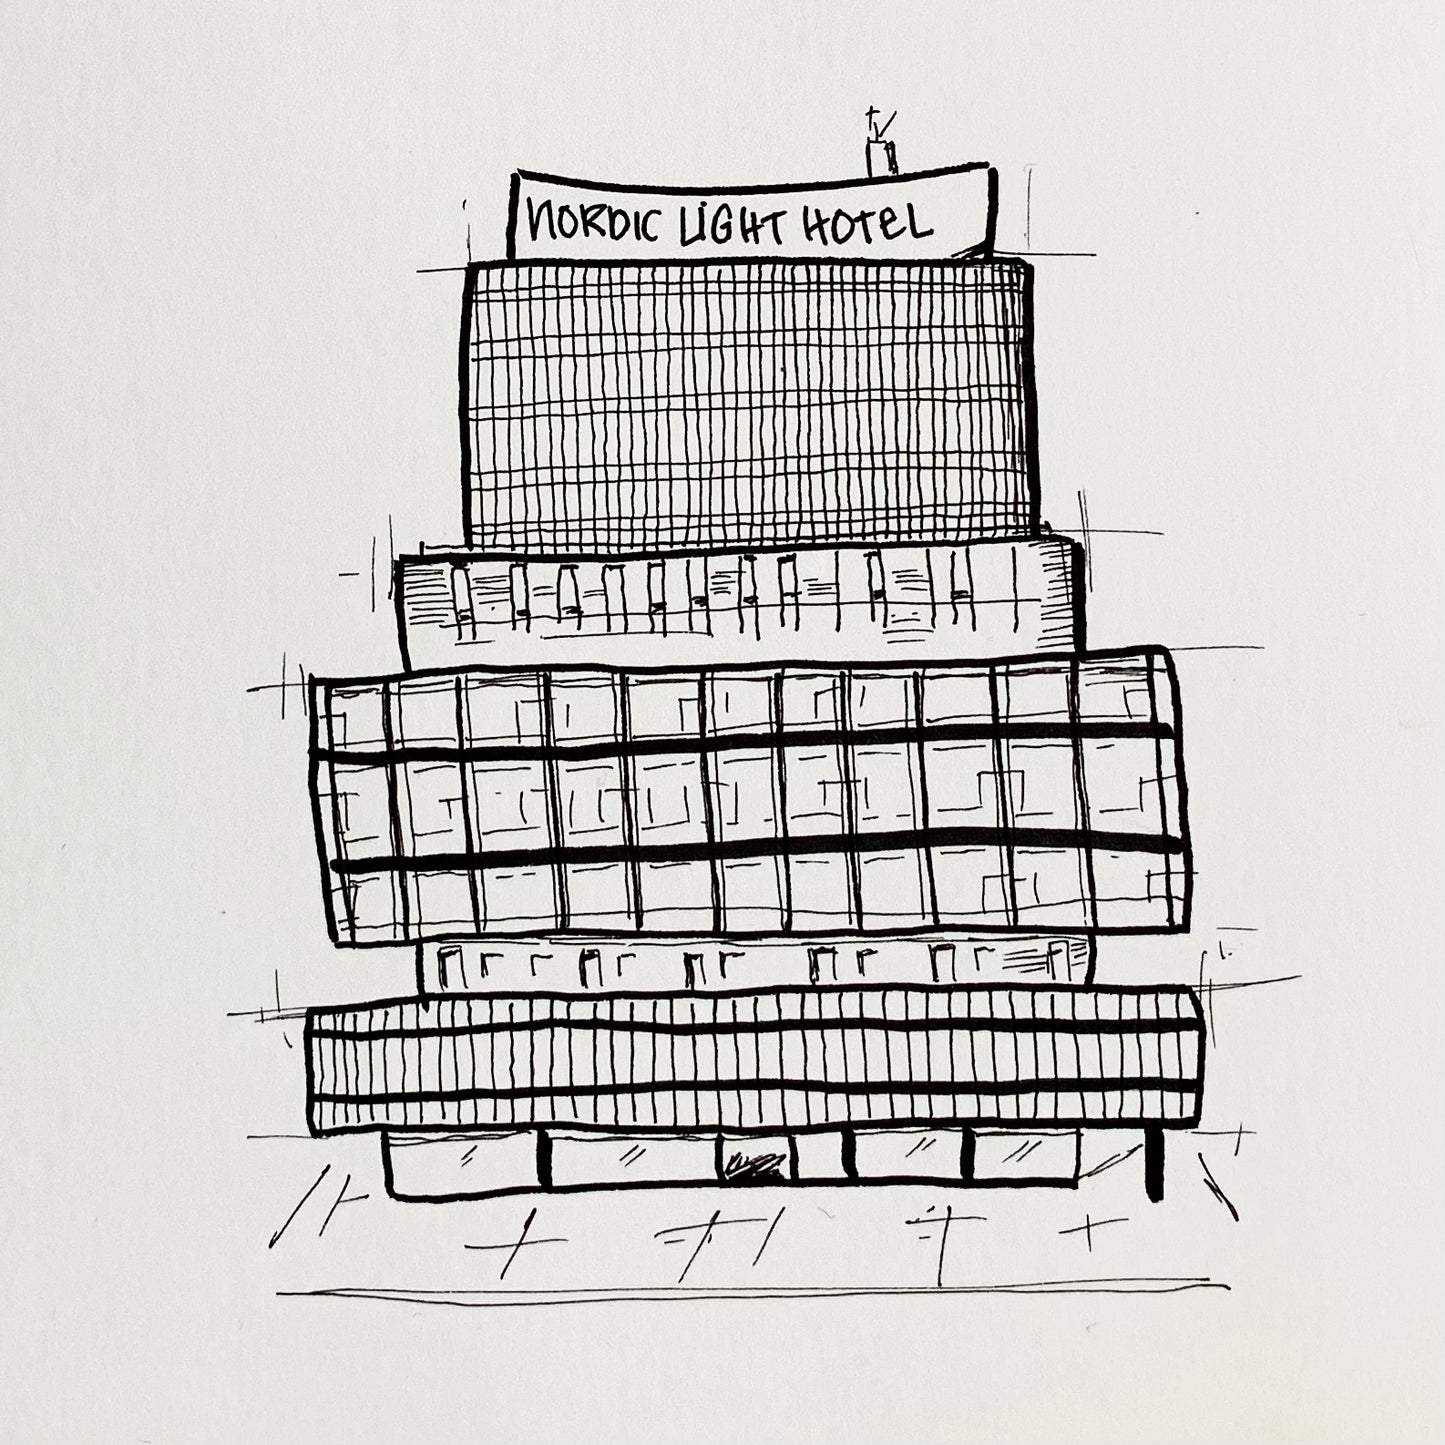 NORDIC LiGHT HOTeL